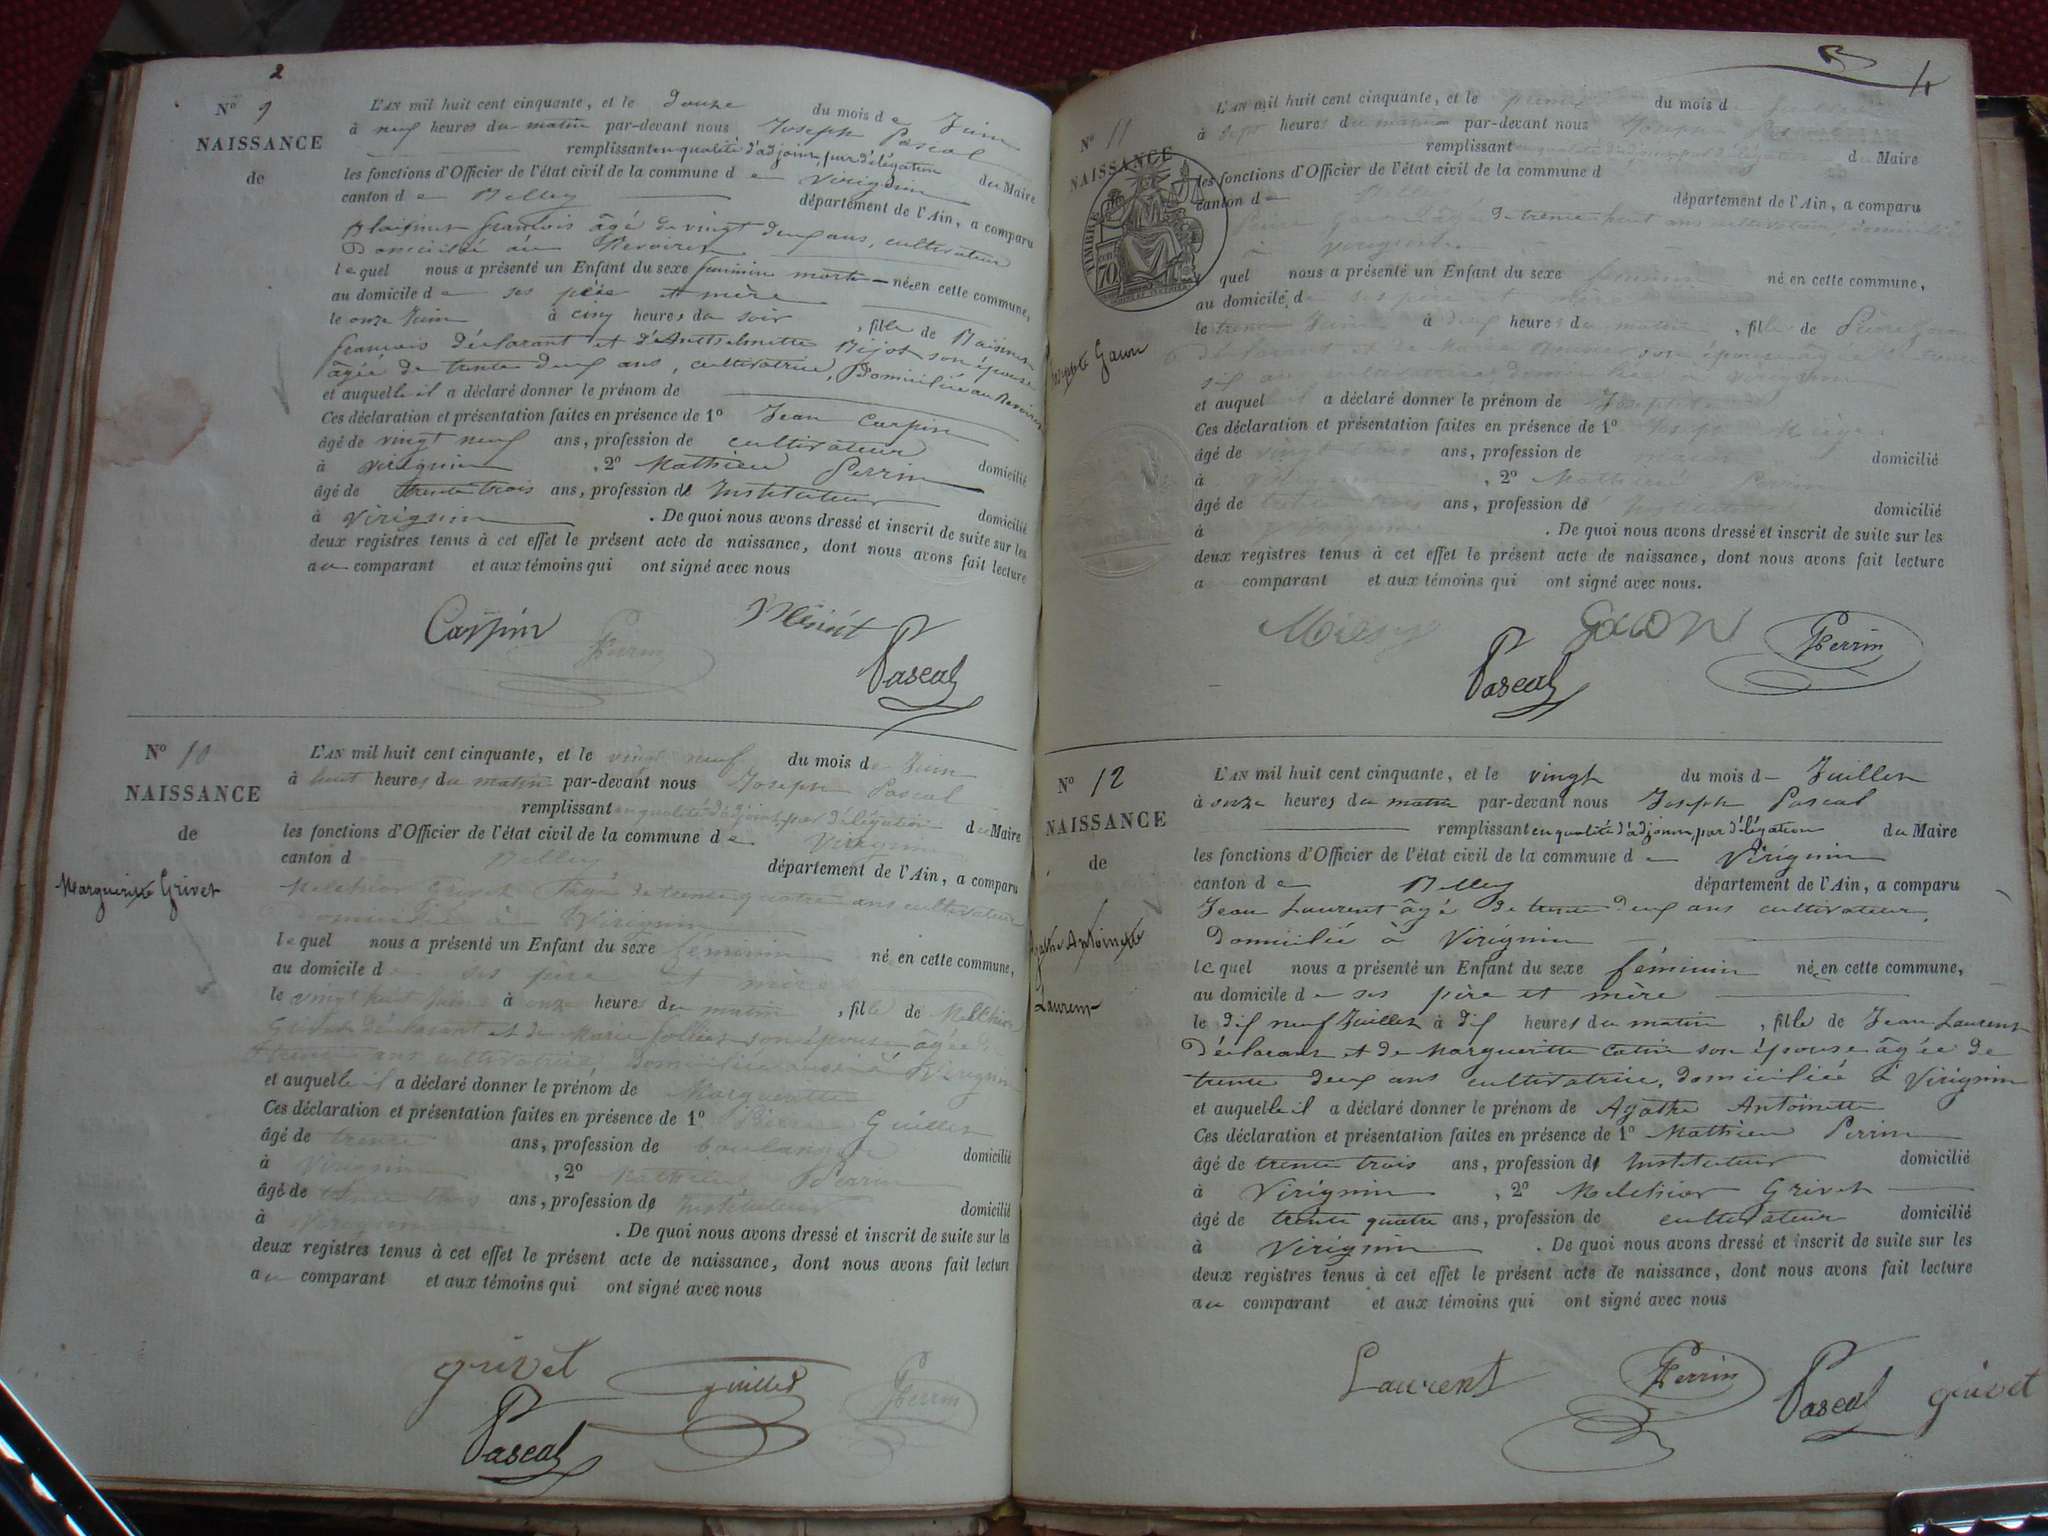 2
N° 9
NAISSANCE
de
L'AN mil huit cent cinquante, et le douze du mois de Juin
à neuf heures du matin par-devant nous Joseph Pascal
remplissant en qualité d'adjoint, par délégation du Maire
les fonctions d'Officier de l'état civil de la commune de Virignin
canton de Belley département de l'Ain, a comparu
françois âgé de vingt deux ans, cultivateur
Domicilié au
lequel nous a présenté un Enfant du sexe féminin morte née en cette commune,
au domicile de ses père et mère
le onze Juin à cinq heures du soir, fille de
françois déclarant et d'Anthelmette son épouse
âgée de trente deux ans, cultivatrice, Domiciliée au
et auquelle il a déclaré donner le prénom de
Ces déclaration et présentation faites en présence de 1° Jean Carpin
âgé de vingt neuf ans, profession de cultivateur domicilié
à Virignin, 2° Mathieu Perrin
âgé de trente trois ans, profession d' Instituteur domicilié
à Virignin. De quoi nous avons dressé et inscrit de suite sur les
deux registres tenus à cet effet le présent acte de naissance, dont nous avons fait lecture
au comparant et aux témoins qui ont signé avec nous
Carpin Perrin
Pascal
N° 10
NAISSANCE
de
Margueritte Grivet
L'AN mil huit cent cinquante, et le vingt neuf du mois de Juin
à huit heures du matin par-devant nous Joseph Pascal
remplissant en qualité d'adjoint, par délégation du Maire
les fonctions d'Officier de l'état civil de la commune de Virignin
canton d Belley département de l'Ain, a comparu
Melchior Grivet âgé de trente quatre ans cultivateur
domicilié à Virignin
lequel nous a présenté un Enfant du sexe féminin né en cette commune,
au domicile d ses père et mère
le vingt huit Juin à onze heures du matin, fille de Melchior
Grivet déclarant et de Marie son épouse âgée de
trente ans cultivatrice, domiciliée à Virignin
et auquelle il a déclaré donner le prénom de Margueritte
Ces déclaration et présentation faites en présence de 1° Pierre Guillet
âgé de trente ans, profession de boulanger domicilié
à Virignin, 2° Mathieu Perrin
âgé de trente trois ans, profession d' Instituteur domicilié
à Virignin. De quoi nous avons dressé et inscrit de suite sur les
deux registres tenus à cet effet le présent acte de naissance, dont nous avons fait lecture
au comparant et aux témoins qui ont signé avec nous
grivet guillet Perrin
Pascal
4
N° 11
NAISSANCE
TIMBRE
70
Gacon
L'AN mil huit cent cinquante, et le premier du mois d
à sept heures du matin par-devant nous Joseph
remplissant du Maire
les fonctions d'Officier de l'état civil de la commune d
canton de département de l'Ain, a comparu
de trente huit ans cultivateur, domicilié
à Virignin
quel nous a présenté un Enfant du sexe féminin né en cette commune,
au domicile de ses père et
le trente Juin à deux heures du matin, fille de Pierre Gacon
déclarant et de Marie son épouse
et auquel il a déclaré donner le prénom de
Ces déclaration et présentation faites en présence de 1°
âgé de vingt ans, profession de domicilié
à Virignin, 2° Mathieu Perrin
âgé de trente trois ans, profession d' instituteur domicilié
à. De quoi nous avons dressé et inscrit de suite sur les
deux registres tenus à cet effet le présent acte de naissance, dont nous avons fait lecture
a comparant et aux témoins qui ont signé avec nous.
gacon Perrin
Pascal
N° 12
NAISSANCE
de
Agathe Antoinette
Laurent
L'AN mil huit cent cinquante, et le vingt du mois d Juillet
à onze heures du matin par-devant nous Joseph Pascal
remplissant en qualité d'adjoint, par délégation du Maire
les fonctions d'Officier de l'état civil de la commune de Virignin
canton de Belley département de l'Ain, a comparu
Jean Laurent âgé de trente deux ans cultivateur,
Domicilié à Virignin
lequel nous a présenté un Enfant du sexe féminin née en cette commune,
au domicile de ses père et mère
le dix neuf Juillet à dix heures du matin, fille de Jean Laurent
Déclarant et de Margueritte Catin son épouse âgée de
trente deux ans cultivatrice, domiciliée à Virignin
et auquelle il a déclaré donner le prénom de Agathe Antoinette
Ces déclaration et présentation faites en présence de 1° Mathieu Perrin
âgé de trente trois ans, profession d' Instituteur domicilié
à Virignin, 2° Melchior Grivet
âgé de trente quatre ans, profession de cultivateur domicilié
à Virignin. De quoi nous avons dressé et inscrit de suite sur les
deux registres tenus à cet effet le présent acte de naissance, dont nous avons fait lecture
au comparant et aux témoins qui ont signé avec nous
Laurent Perrin Pascal grivet